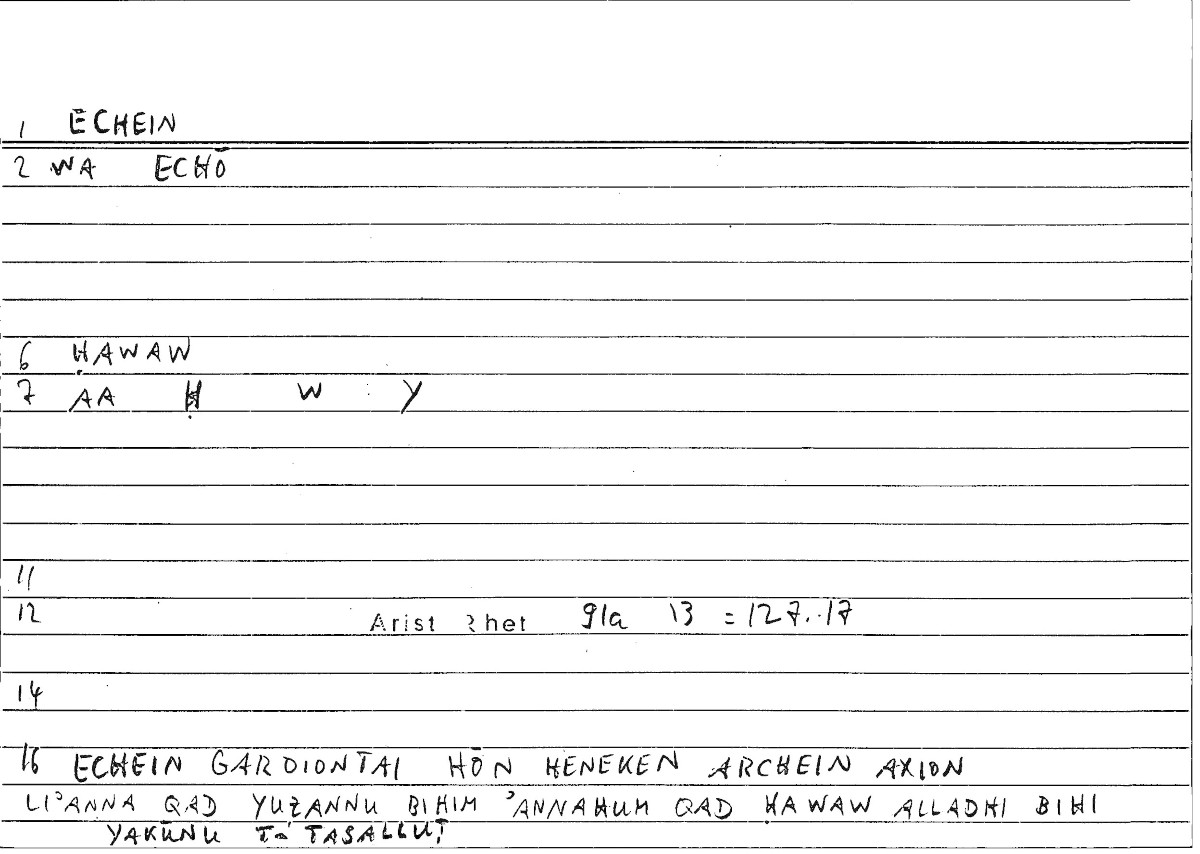 1 ECHEIN
2 WA ECHŌ
6 ḤAWAW
7 AA Ḥ W Y
11
12 Arist Rhet 91a 13 = 127.17
14
16 ECHEIN GAR DIONTAI HŌN HENEKEN ARCHEIN AXION
LI'ANNA QAD YUẒANNU BIHIM 'ANNAHUM QAD ḤAWAW ALLADHI BIHI
YAKŪNU TASALLUṬ